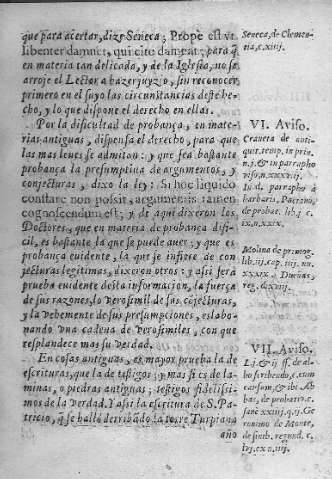 que para acertar, dize Seneca; Prope est vt
libenter damnet, qui cito damnat; para q̃
en materia tan delicada, y de la Iglesia, no se
arroje el Lector a hazer juyzio, sin reconocer
primero en el suyo las circunstancias deste he-
cho, y lo que dispone el derecho en ellas.
Por la dificultad de probança, en mate-
rias antiguas, dispensa el derecho, para que
las mas leues se admitan: y que sea bastante
probança la presumptiua de argumentos, y
conjecturas, dixo la ley: Si hoc liquido
constare non possit, argumentis tamen
cognoscendum est; y de aqui dixeron los
Doctores, que en materia de probança difi-
cil, es bastante la que se puede auer; y que es
probança euidente, la que se infiere de con-
jecturas legitimas, dixeron otros: y assi serà
prueba euidente desta informacion, la fuerça
de sus razones, lo verosimil de sus conjecturas,
y la vehemente de sus presumpciones, eslabo-
nando vna cadena de verosimiles, con que
resplandece mas su verdad.
En cosas antiguas, es mayor prueba la de
escrituras, que la de testigos; y mas si es de la-
minas, o piedras antiguas; testigos fidelissi-
mos de la verdad. Y assi la escritura de S. Pa-
tricio, q̃ se hallò derribãdo la torre Turpiana
año
Seneca, de Clemen-
tia, c. xiij.
VI. Auiso.
Craueta de anti-
quit. temp. in prin.
n. j. & in parrapho
viso, n. xxxxij.
In d. parrapho à
barbaris, Paciano,
de probac. lib. j. c.
ix, n. xxix.
Molina de primog.
lib. ij, cap. iiij. nu.
XXXIX. Dueñas,
reg.
VII. Auiso.
L. j. & ij ff. de al-
bo scribendo, c. cum
carsum, & ibi Ab-
bas, de probatio. c.
sane xxiij. q. ij. Ge
ronimo de Monte,
de finib. regund. c.